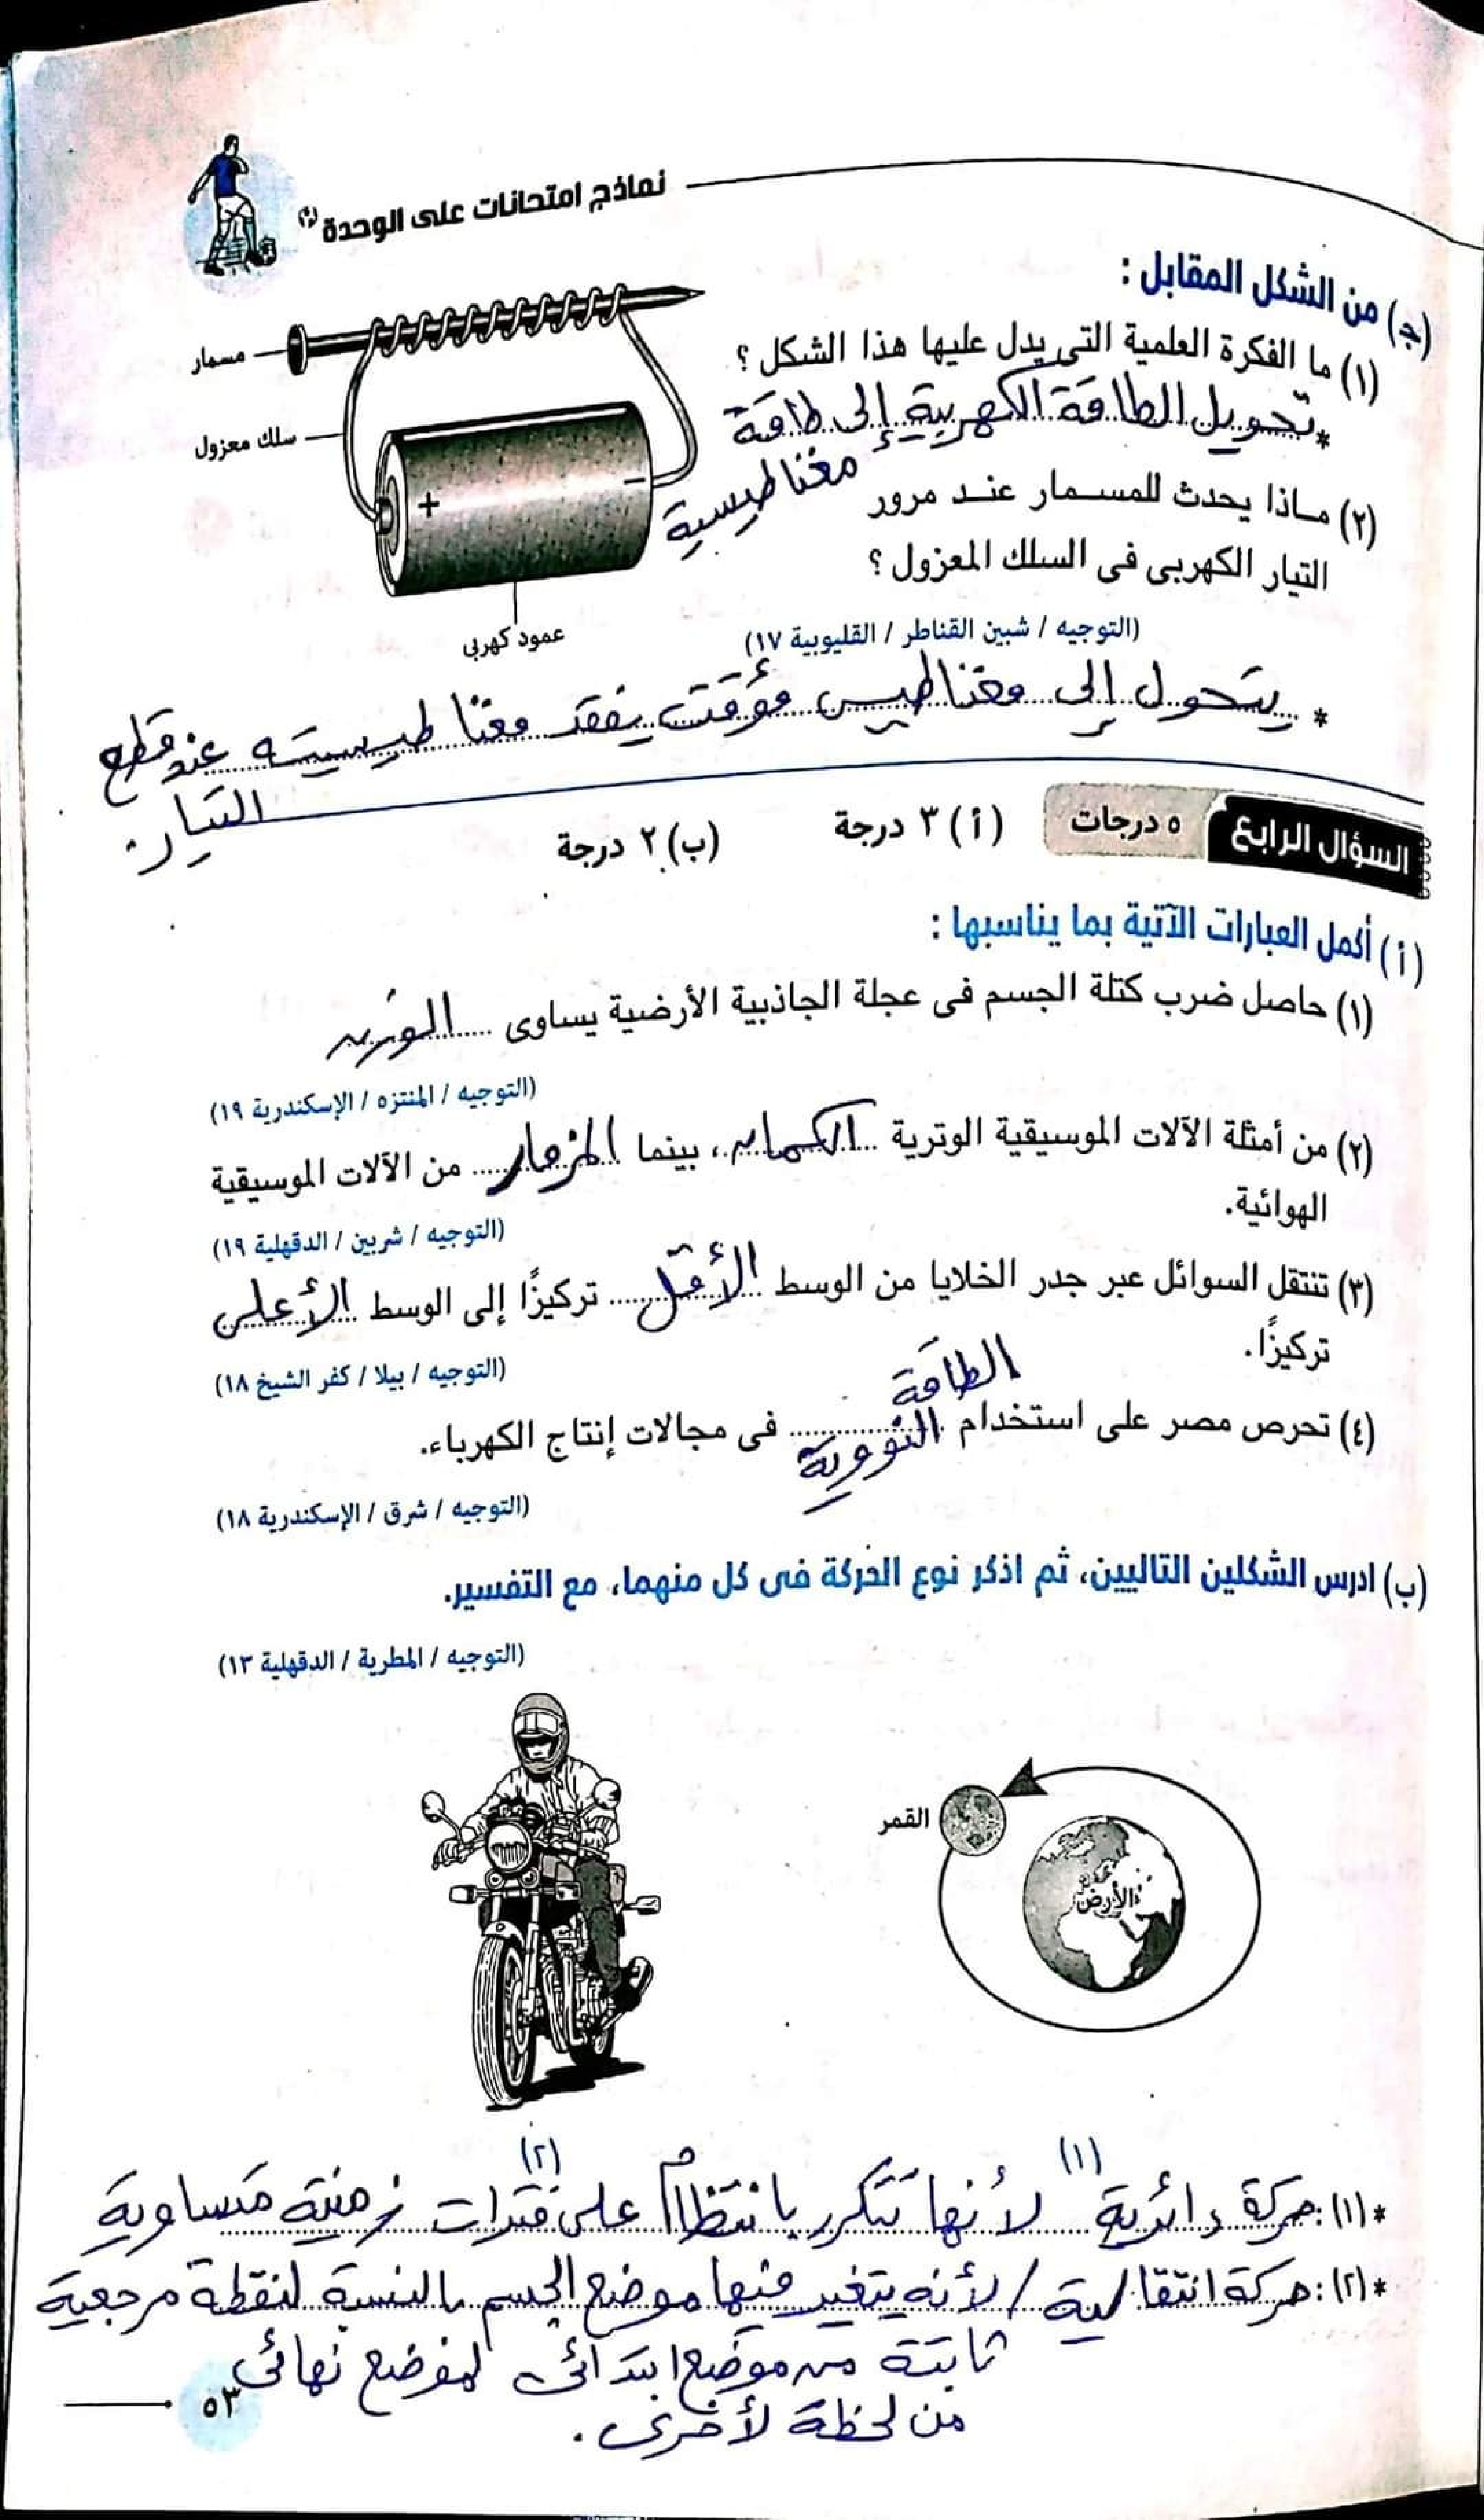 نماذج امتحانات على الوحدة
(ج) من الشكل المقابل :
(١) ما الفكرة العلمية التى يدل عليها هذا الشكل ؟
* تحويل الطاقة الكهربية إلى طاقة
مغناطيسية
(٢) ماذا يحدث للمسمار عند مرور
التيار الكهربى فى السلك المعزول ؟
(التوجيه / شبين القناطر / القليوبية ١٧)
مسمار
سلك معزول
+
−
عمود كهربى
* يتحول إلى مغناطيس مؤقت يفقد مغناطيسيته عند قطع
التيار.
السؤال الرابع
٥ درجات
(أ) ٣ درجة
(ب) ٢ درجة
(أ) أكمل العبارات الآتية بما يناسبها :
(١) حاصل ضرب كتلة الجسم فى عجلة الجاذبية الأرضية يساوى الوزن
(التوجيه / المنتزه / الإسكندرية ١٩)
(٢) من أمثلة الآلات الموسيقية الوترية الكمان ، بينما المزمار من الآلات الموسيقية
الهوائية.
(التوجيه / شربين / الدقهلية ١٩)
(٣) تنتقل السوائل عبر جدر الخلايا من الوسط الأقل تركيزًا إلى الوسط الأعلى
تركيزًا.
(التوجيه / بيلا / كفر الشيخ ١٨)
(٤) تحرص مصر على استخدام الطاقة النووية فى مجالات إنتاج الكهرباء.
(التوجيه / شرق / الإسكندرية ١٨)
(ب) ادرس الشكلين التاليين، ثم اذكر نوع الحركة فى كل منهما، مع التفسير.
(التوجيه / المطرية / الدقهلية ١٣)
القمر
الأرض
(١)
(٢)
* (١): حركة دائرية لأنها تتكرر بانتظام على فترات زمنية متساوية
* (٢): حركة انتقالية / لأنه يتغير فيها موضع الجسم بالنسبة لنقطة مرجعية
ثابتة من موضع ابتدائى لموضع نهائى
من لحظة لأخرى .
٥٣